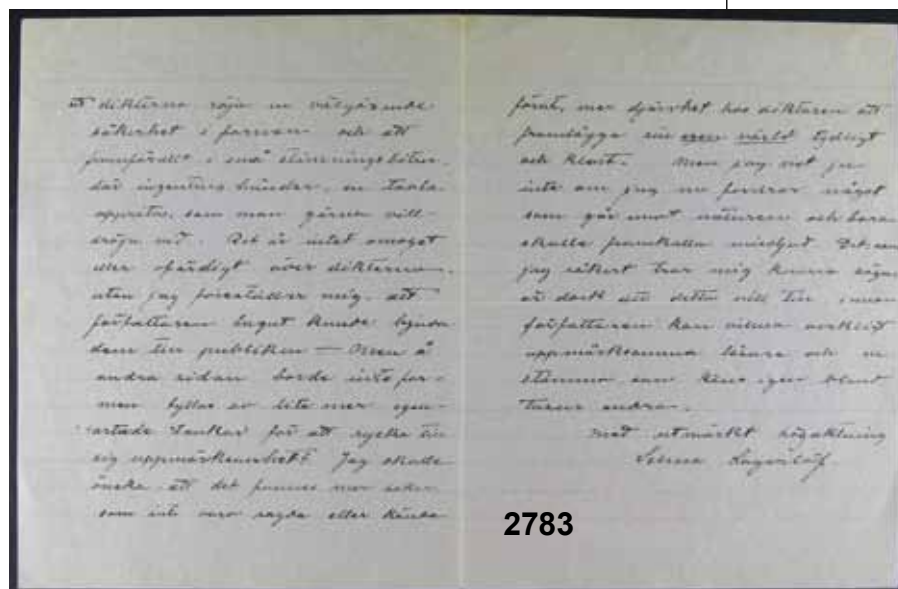 att dikterna röja en välgörande
säkerhet i formen och att
framförallt i små stämningsbitar,
där ingenting händer, en tavla
upprita, som man gärna vill
dröja vid. Det är intet omoget
eller ofärdigt över dikterna
utan jag föreställer mig, att
författaren lugnt kunde bjuda
dem till publiken — Men å
andra sidan borde inte for-
men fyllas av lite mer egen-
artade tankar för att rycka till
sig uppmärksamhet? Jag skulle
önska att det funnes mer saker
som inte voro sagda eller kända
förut, mer djärvhet hos diktaren att
framlägga sin egen värld tydligt
och klart. Men jag vet ju
inte om jag nu fordrar något
som går emot naturen och bara
skulle framkalla missljud. Det som
jag säkert tror mig kunna säga
är dock att detta vill till, innan
författaren kan vinna verkligt
uppmärksamma läsare och en
stämma som kännes igen bland
andra.
Med utmärkt högaktning
Selma Lagerlöf.
2783